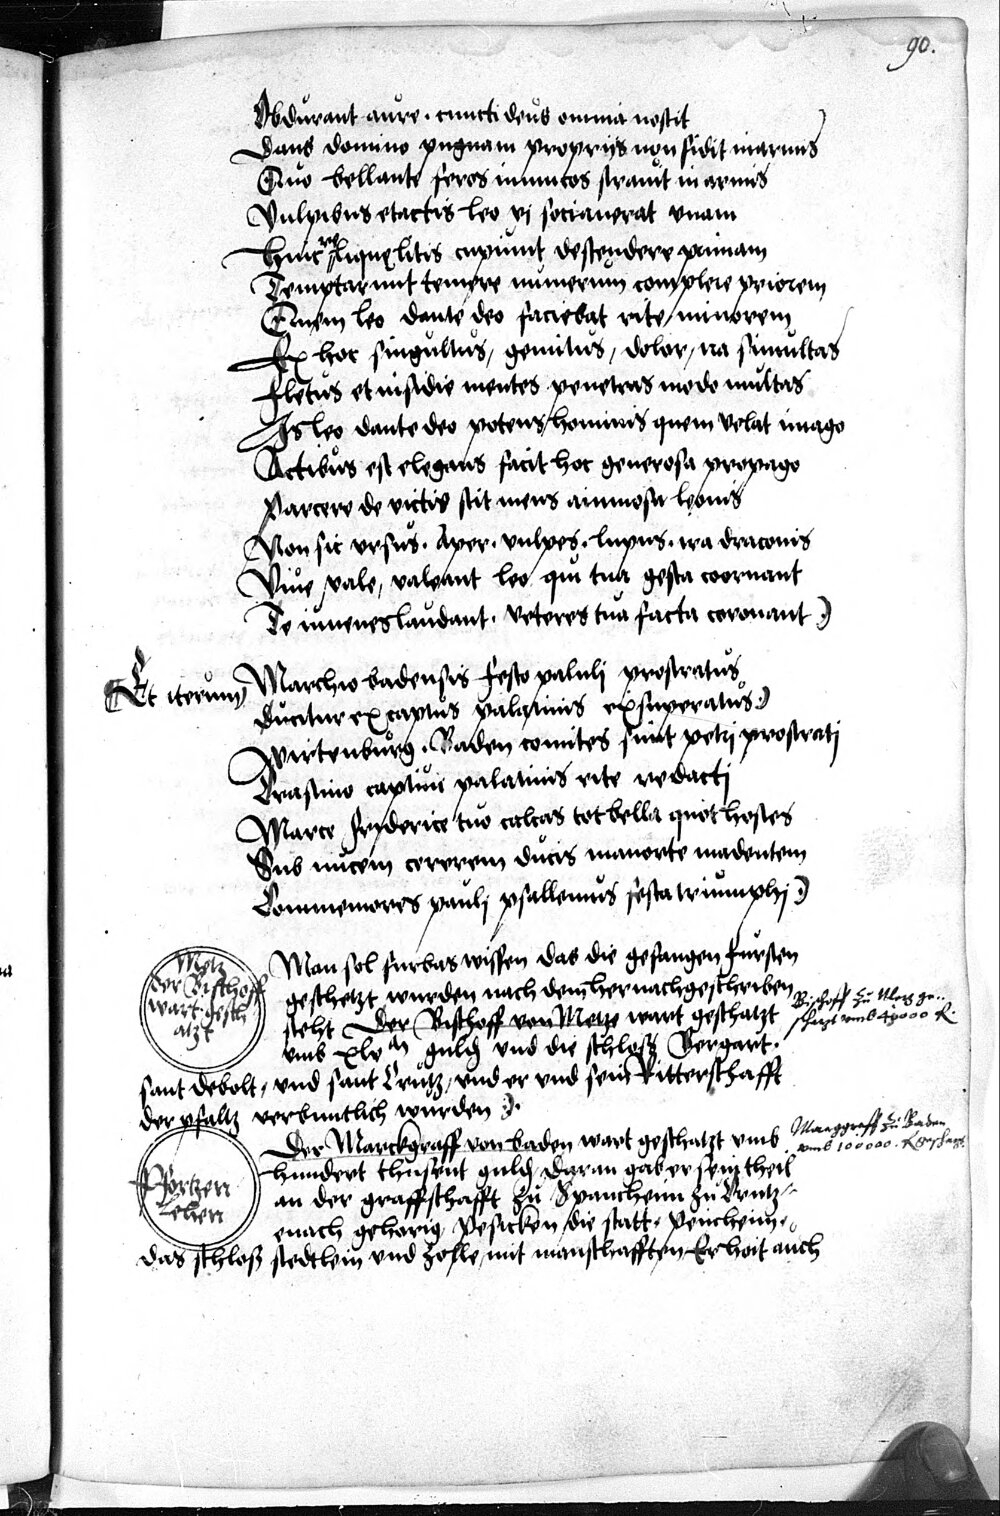 90.
Obdurant aure · cuncti deus omnia nostit
Dans domino pugnam proprijs non fidit in armis
Quo bellante feros inimicos stravit in armis
Vulpibus etactis leo vi sotiaverat vnam
Hinc reliquelitis cupiunt destendere primam
Temptarunt temere numerum complere priorem
Quem leo dante deo faciebat rite minorem
Ex hoc singultus, gemitus, dolor, ira simultas
Fletus et insidie mentes penetras modo multas
Is leo dante deo potens hominis quem velat imago
Actibus est elegans facit hoc generosa propago
Parcere de victis scit mens animosa leonis
Non sic vrsus · Aper · vulpes · lupus · ira draconis
Viue vale, valeant leo qui tua gesta coornant
Te iuuenes laudant · veteres tua facta coronant
Et iterum
Marchio badensis festo pauli prostratus
Ducitur ex captus palatinis exsuperatus
Wirtenburg · Baden comites sunt petri prostrati
Crastino captiui palatinis rite redacti
Marce fryderice tuo calcas tot bella quot hostes
Sub nucem cererem ducis mauorte madentem
Commemores pauli psallemus festa triumphi
Metz
der Bisthoff
wart gesch
atzt
Man sol furbas wissen das die gefangen fursten
geschetzt wurden nach dem hernachgeschriben
steht Der Bisthoff von Metze wart geschatzt
vmb xlv m guldj vnd die schlosz Gergart ·
sant debolt, vnd sant Crutz, vnd er vnd sein Ritterschafft
der pfaltz verbuntlich wurden
Bischoff zu Metz ge
schazt vmb 45000 R.
Pfortzen
Lehen
Der Marckgraff von baden wart geschatzt vmb
hundert thusent guldj daran gab er sein theil
an der graffschafft zu Spanheim zu Crutz
enach gehorig, Pesicken die statt,
das schlosz stedtlein vnd zolle, mit manschafften Er hort auch
Marggraff zu Baden
vmb 100000. R geschazt